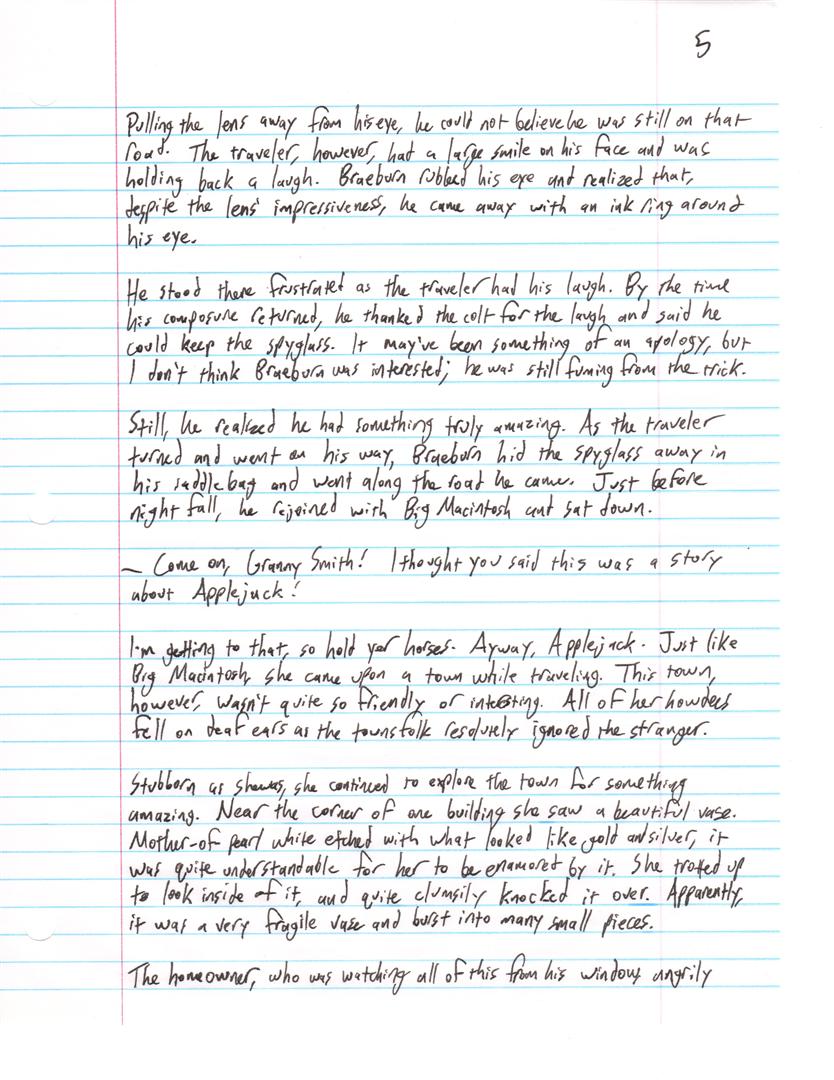 5
Pulling the lens away from his eye, he could not believe he was still on that
road. The traveler, however, had a large smile on his face and was
holding back a laugh. Braeburn rubbed his eye and realized that,
despite the lens' impressiveness, he came away with an ink ring around
his eye.
He stood there frustrated as the traveler had his laugh. By the time
his composure returned, he thanked the colt for the laugh and said he
could keep the spyglass. It may've been something of an apology, but
I don't think Braeburn was interested; he was still fuming from the trick.
Still, he realized he had something truly amazing. As the traveler
turned and went on his way, Braeburn hid the spyglass away in
his saddlebag and went along the road he came. Just before
night fall, he rejoined with Big Macintosh and sat down.
— Come on, Granny Smith! I thought you said this was a story
about Applejack!
I'm getting to that, so hold yer horses. Ayway, Applejack. Just like
Big Macintosh, she came upon a town while traveling. This town,
however, wasn't quite so friendly or interesting. All of her howdees
fell on deaf ears as the townsfolk resolutely ignored the stranger.
Stubborn as she was, she continued to explore the town for something
amazing. Near the corner of one building she saw a beautiful vase.
Mother-of pearl white etched with what looked like gold and silver, it
was quite understandable for her to be enamored by it. She trotted up
to look inside of it, and quite clumsily knocked it over. Apparently,
it was a very fragile vase and burst into many small pieces.
The homeowner, who was watching all of this from his window, angrily